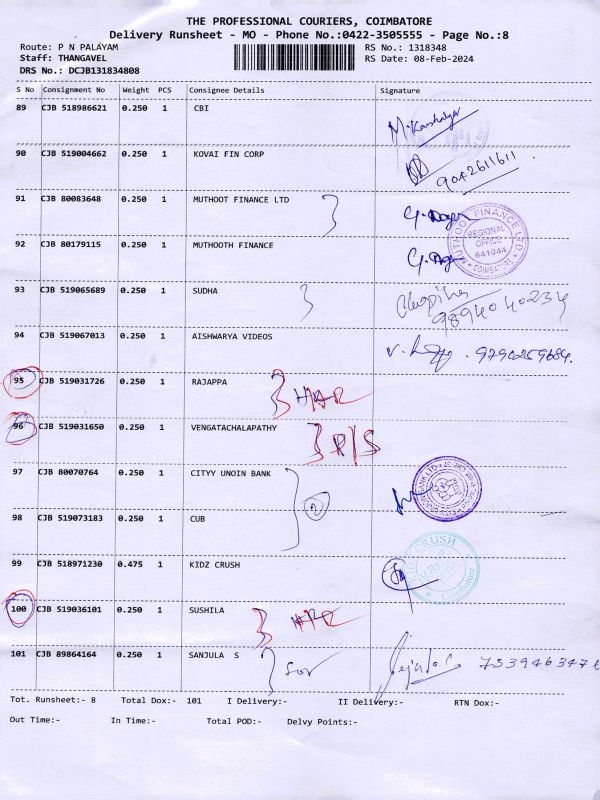 THE PROFESSIONAL COURIERS, COIMBATORE
Delivery Runsheet - MO - Phone No.:0422-3505555 - Page No.:8
Route: P N PALAYAM RS No.: 1318348
Staff: THANGAVEL RS Date: 08-Feb-2024
DRS No.: DCJB131834808
S No Consignment No Weight PCS Consignee Details Signature
89 CJB 518986621 0.250 1 CBI
90 CJB 519004662 0.250 1 KOVAI FIN CORP 9042611611
91 CJB 80083648 0.250 1 MUTHOOT FINANCE LTD
MUTHOOT FINANCE LTD REGIONAL OFFICE 641044 COIMBATORE
92 CJB 80179115 0.250 1 MUTHOOTH FINANCE
93 CJB 519065689 0.250 1 SUDHA 9894040234
94 CJB 519067013 0.250 1 AISHWARYA VIDEOS 9790259684.
95 CJB 519031726 0.250 1 RAJAPPA
96 CJB 519031650 0.250 1 VENGATACHALAPATHY R/S
97 CJB 80070764 0.250 1 CITYY UNOIN BANK
2
98 CJB 519073183 0.250 1 CUB
99 CJB 518971230 0.475 1 KIDZ CRUSH
RUSH Coimbatore
100 CJB 519036101 0.250 1 SUSHILA
101 CJB 89864164 0.250 1 SANJULA S
Tot. Runsheet:- 8 Total Dox:- 101 I Delivery:- II Delivery:- RTN Dox:-
Out Time:- In Time:- Total POD:- Delvy Points:-